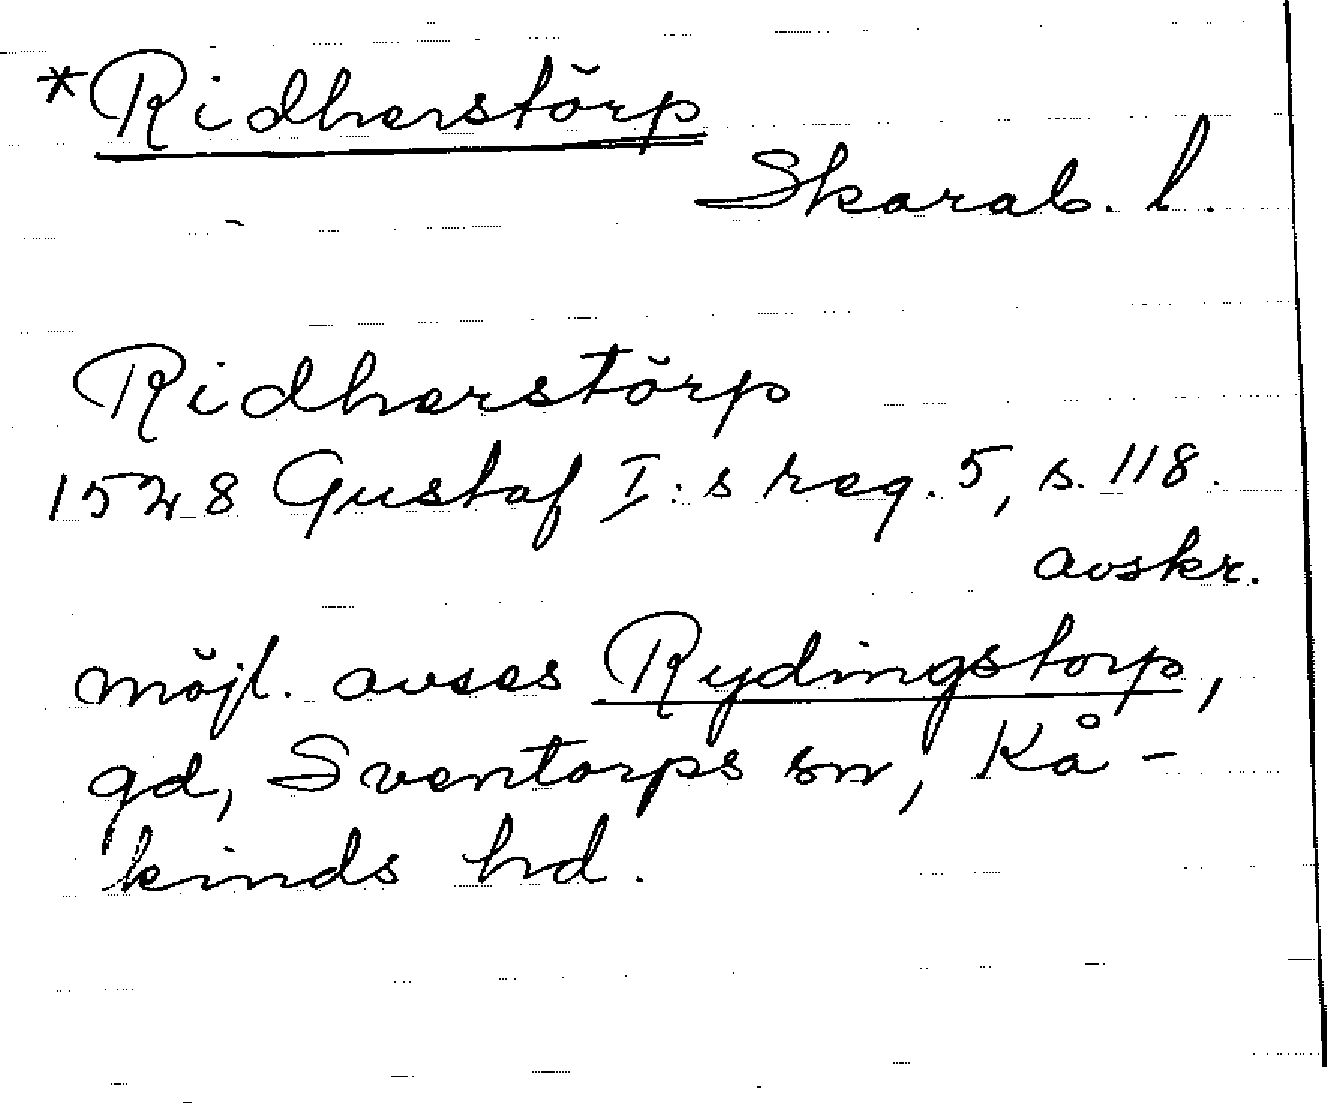 *Ridherstörp
Skarab. l.
Ridherstörp
1528 Gustaf I:s reg. 5, s. 118.
avskr.
möjl. avses Rydingstorp,
gd, Sventorps sn, Kå-
kinds hd.